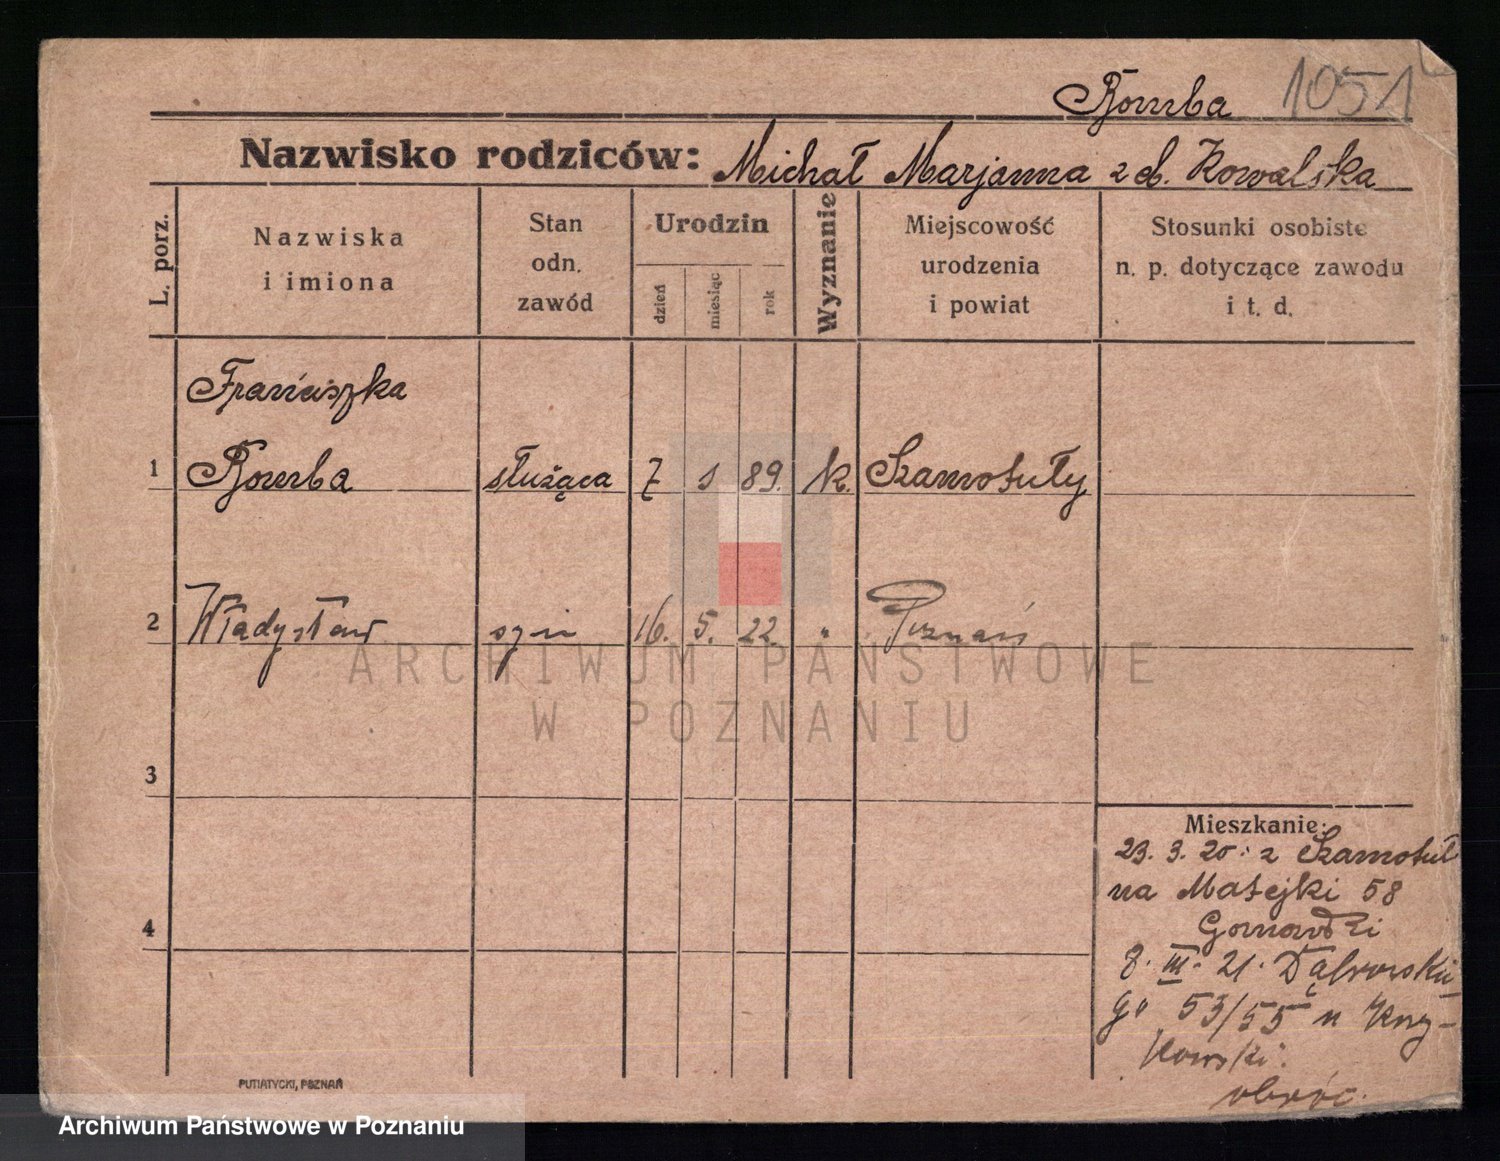 Bomba 1051
Nazwisko rodziców: Michał Marjanna z d. Kowalska
L. porz.
Nazwiska
i imiona
Stan
odn.
zawód
Urodzin
dzień
miesiąc
rok
Wyznanie
Miejscowość
urodzenia
i powiat
Stosunki osobiste
n. p. dotyczące zawodu
i t. d.
Franciszka
1 Bomba służąca 7 1 89. k. Szamotuły
2 Władysław syn 16. 5. 22. " Poznań
3
4
Mieszkanie:
23. 3. 20. z Szamotuł
na Matejki 58
8. III. 21. Dąbrowskie-
go 53/55 u
obróc.
PUTIATYCKI, POZNAŃ
ARCHIWUM PAŃSTWOWE
W POZNANIU
Archiwum Państwowe w Poznaniu